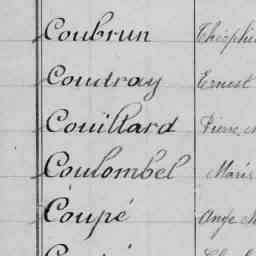 Coubrun
Coudray Ernest
Couillard Pierre
Coulombel Marie
Coupé Ange